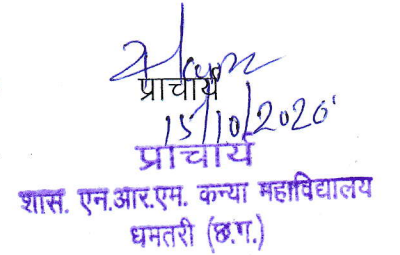 प्राचार्य
15/10/2020
प्राचार्य
शास. एन.आर.एम. कन्या महाविद्यालय
धमतरी (छ.ग.)